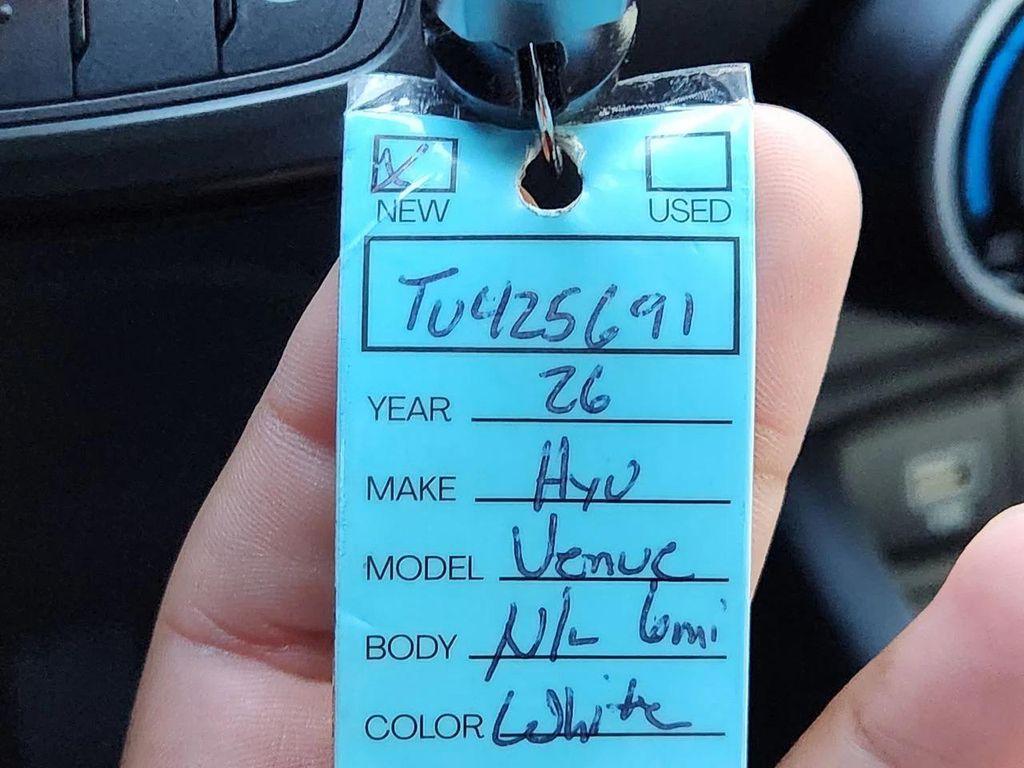 NEW USED
TU425691
YEAR 26
MAKE Hyu
MODEL Venue
BODY N/L 6mi
COLOR White